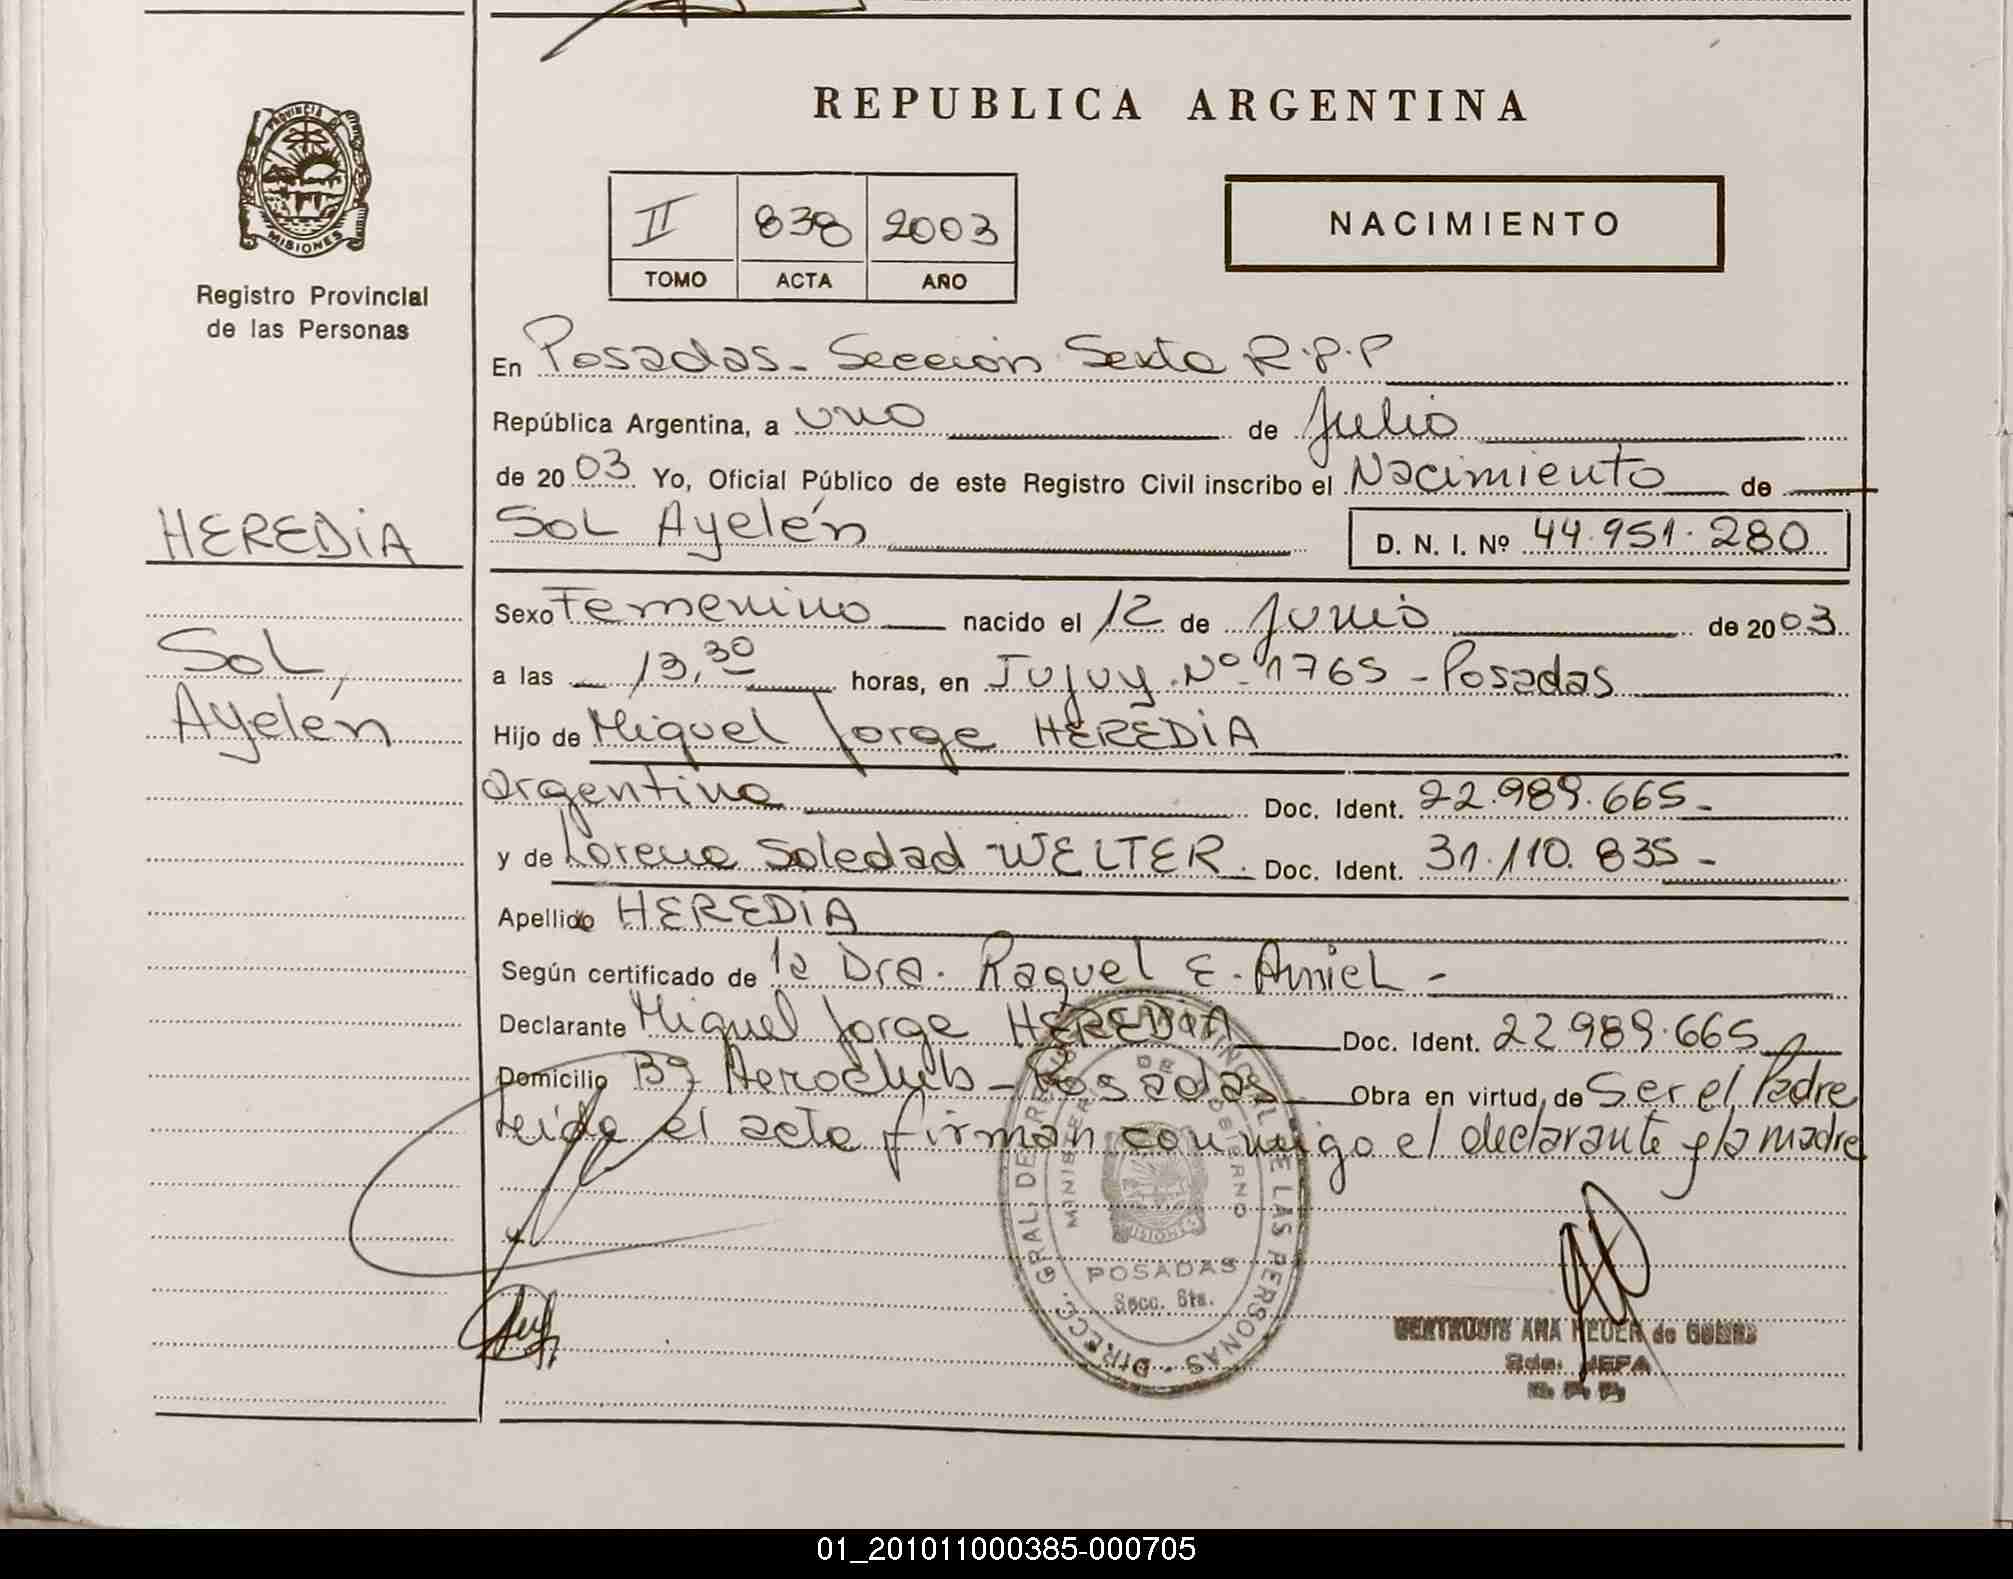 REPUBLICA ARGENTINA
PROVINCIA DE
MISIONES
Registro Provincial
de las Personas
II 838 2003
TOMO ACTA AÑO
NACIMIENTO
En Posadas - Sección Sexta R.P.P
República Argentina, a uno de Julio
de 2003 Yo, Oficial Público de este Registro Civil inscribo el Nacimiento de
HEREDIA
SOL Ayelén D. N. I. Nº 44.951.280
Sexo Femenino nacido el 12 de Junio de 2003
SOL,
Ayelén
a las 13,30 horas, en Jujuy Nº 1765 - Posadas
Hijo de Miguel Jorge HEREDIA
argentino Doc. Ident. 22.989.665-
y de Lorena Soledad WELTER. Doc. Ident. 31.110.835-
Apellido HEREDIA
Según certificado de la Dra. Raquel E. Amiel -
Declarante Miguel Jorge HEREDIA Doc. Ident. 22989.665
Domicilio Bº Aeroclub - Posadas Obra en virtud de Ser el Padre
Leida el acta firman conmigo el declarante y la madre
DIRECC. GRAL. DE PROVINCIAL DE LAS PERSONAS
MINISTERIO DE GOBIERNO
MISIONES
POSADAS
Secc. 6ta.
ANA de
JEFA
R. P. P.
01_201011000385-000705